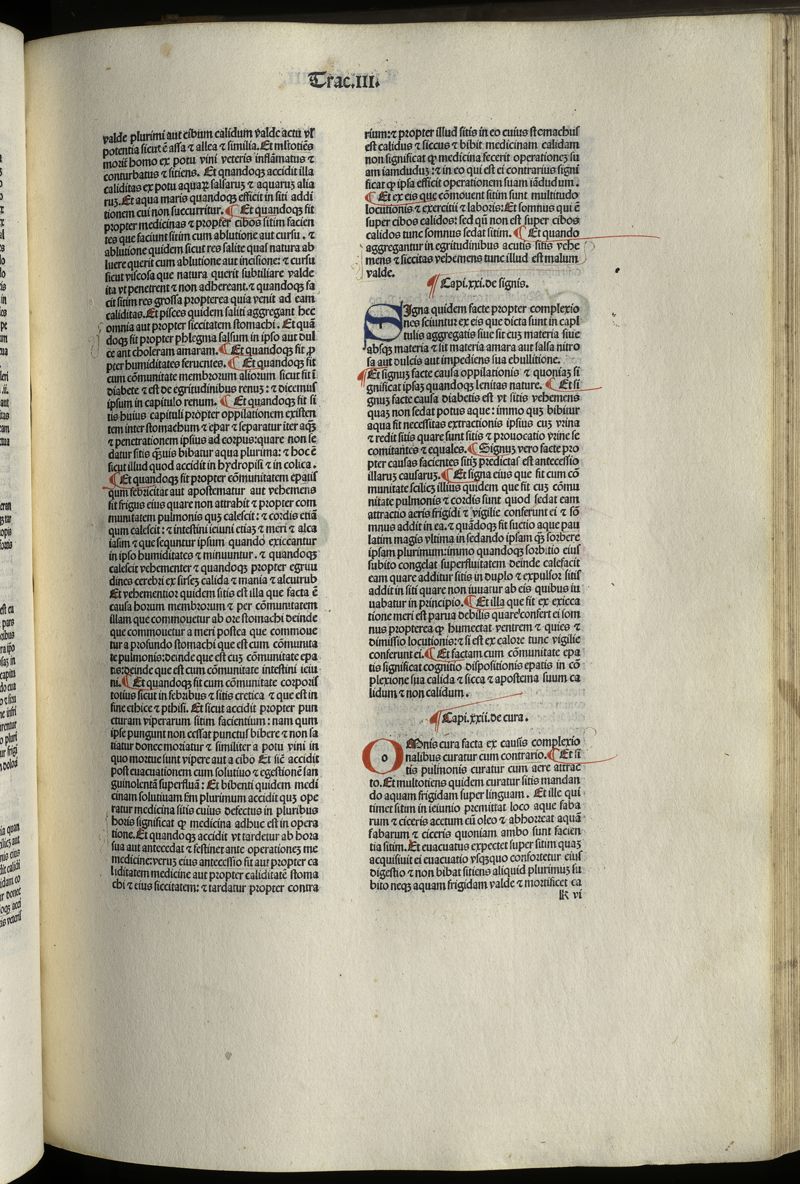 Trac.III.
valde plurimi aut cibum calidum valde actu vl'
potentia sicut ē assa ⁊ allea ⁊ similia. Et mltotiēs
moriť homo ex potu vini veteris inflāmatus ⁊
conturbatus ⁊ sitiens. Et qnandoqꝫ accidit illa
caliditas ex potu aquaꝝ salsaruꝫ ⁊ aquarus alia
ruꝫ. Et aqua maris quandoqꝫ efficit in siti addi
tionem cui non succurritur. ¶ Et quandoqꝫ fit
propter medicinas ⁊ propter cibos sitim facien
tes que faciunt sitim cum ablutione aut cursu. ⁊
ablutione quidem sicut res salite quas natura ab
luere querit cum ablutione aut incisione: ⁊ cursu
sicut viscosa que natura querit subtiliare valde
ita vt penetrent ⁊ non adhereant. ⁊ quandoqꝫ fa
cit sitim res grossa propterea quia venit ad eam
caliditas. Et pisces quidem saliti aggregant hec
omnia aut propter siccitatem stomachi. Et quā
doqꝫ fit propter phlegma salsum in ipso aut dul
ce aut choleram amaram. ¶ Et quandoqꝫ fit ꝓ
pter humiditates feruentes. ¶ Et quandoqꝫ fit
cum cōmunitate membrorum aliorum sicut fit ī
diabete ⁊ est de egritudinibus renuꝫ: ⁊ dicemus
ipsum in capitulo renum. ¶ Et quandoqꝫ fit si
tis huius capituli propter oppilationem existen
tem inter stomachum ⁊ epar ⁊ separatur iter aqꝫ
⁊ penetrationem ipsius ad corpus: quare non se
datur sitis qꝫuis bibatur aqua plurima: ⁊ hoc ē
sicut illud quod accidit in hydropisi ⁊ in colica.
¶ Et quandoqꝫ fit propter cōmunitatem epatis
qum febricitat aut apostematur aut vehemens
fit frigus eius quare non attrabit ⁊ propter com
munitatem pulmonis quꝫ calescit: ⁊ cordis etiā
qum calescit: ⁊ intestini ieiuni etiaꝫ ⁊ meri ⁊ alca
iasim ⁊ que sequuntur ipsum quando exiccantur
in ipso humiditates ⁊ minuuntur. ⁊ quandoqꝫ
calescit vehementer ⁊ quandoqꝫ propter egritu
dines cerebri ex sirseꝫ calida ⁊ mania ⁊ alcutrub
Et vehementior quidem sitis est illa que facta ē
causa horum membrorum ⁊ per cōmunitatem
illam que commouetur ab ore stomachi deinde
que commouetur a meri postea que commoue
tur a profundo stomachi que est cum cōmunita
te pulmonis: deinde que est cuꝫ cōmunitate epa
tis: deinde que est cum cōmunitate intestini ieiu
ni. ¶ Et quandoqꝫ fit cum cōmunitate corporis
totius sicut in febribus ⁊ sitis cretica ⁊ que est in
fine ethice ⁊ pthisi. Et sicut accidit propter pun
cturam viperarum sitim facientium: nam qum
ipse pungunt non cessat punctus bibere ⁊ non sa
tiatur donec moriatur ⁊ similiter a potu vini in
quo mortue sunt vipere aut a cibo Et sic accidit
post euacuationem cum solutiuo ⁊ egestione san
guinolenta superflua: Et bibenti quidem medi
cinam solutiuam sm plurimum accidit quꝫ ope
ratur medicina sitis cuius defectus in pluribus
horis significat ꝙ medicina adhuc est in opera
tione. Et quandoqꝫ accidit vt tardetur ab hora
sua aut antecedat ⁊ festinet ante operationeꝫ me
dicine: veruꝫ eius antecessio fit aut propter ca
liditatem medicine aut propter caliditatē stoma
chi ⁊ eius siccitatem: ⁊ tardatur propter contra
rium: ⁊ propter illud sitis in eo cuius stomachus
est calidus ⁊ siccus ⁊ bibit medicinam calidam
non significat ꝙ medicina fecerit operationeꝫ su
am iamduduꝫ: ⁊ in eo qui est ei contrarius signi
ficat ꝙ ipsa efficit operationem suam iādudum.
¶ Et ex eis que cōmouent sitim sunt multitudo
locutionis ⁊ exercitii ⁊ laboris: Et somnus qui ē
super cibos calidos: sed qn non est super cibos
calidos tunc somnus sedat sitim. ¶ Et quando
aggregantur in egritudinibus acutis sitis vehe
mens ⁊ siccitas vehemens tunc illud est malum
valde.
¶ Capi.xxi.de signis.
SIgna quidem facte propter complexio
nes sciuntur ex eis que dicta sunt in capi
tulis aggregatis siue sit cuꝫ materia siue
absqꝫ materia ⁊ sit materia amara aut salsa nitro
sa aut dulcis aut impediens sua ebullitione.
¶ Et signuꝫ facte causa oppilationis ⁊ quoniaꝫ si
gnificat ipsas quandoqꝫ lenitas nature. ¶ Et si
gnuꝫ facte causa diabetis est vt sitis vehemens
quaꝫ non sedat potus aque: immo quꝫ bibitur
aqua fit necessitas extractionis ipsius cuꝫ vrina
⁊ redit sitis quare sunt sitis ⁊ prouocatio vrine se
comitantes ⁊ equales. ¶ Signuꝫ vero facte pro
pter causas facientes sitiꝫ predictas est antecessio
illarus causarus. ¶ Et signa eius que fit cum cō
munitate scilicꝫ illius quidem que fit cuꝫ cōmu
nitate pulmonis ⁊ cordis sunt quod sedat eam
attractio aeris frigidi ⁊ vigilie conserunt ei ⁊ so
mnus addit in ea. ⁊ quādoqꝫ fit suctio aque pau
latim magis vltima in sedando ipsam qꝫ sorbere
ipsam plurimum: immo quandoqꝫ sorbitio eius
subito congelat superfluitatem deinde calefacit
eam quare additur sitis in duplo ⁊ expulsor sitis
addit in siti quare non iuuatur ab eis quibus iu
uabatur in principio. ¶ Et illa que fit ex exicca
tione meri est parua debilis quare confert ei som
nus propterea ꝙ humectat ventrem ⁊ quies ⁊
dimissio locutionis: ⁊ si est ex calore tunc vigilie
conferunt ei. ¶ Et factam cum cōmunitate epa
tis significat cognitio dispositionis epatis in cō
plexione sua calida ⁊ sicca ⁊ apostema suum ca
lidum ⁊ non calidum.
¶ Capi.xxii.de cura.
OMnis cura facta ex causis complexio
nalibus curatur cum contrario. ¶ Et si
tis pulmonis curatur cum aere attrac
to. Et multotiens quidem curatur sitis mandan
do aquam frigidam super linguam. Et ille qui
timet sitim in ieiunio premittat loco aque faba
rum ⁊ ciceris acetum cū oleo ⁊ abhorreat aquā
fabarum ⁊ ciceris quoniam ambo sunt facien
tia sitim. Et euacuatus expectet super sitim quaꝫ
acquisiuit ei euacuatio vsqꝫquo confortetur eius
digestio ⁊ non bibat sitiens aliquid plurimuꝫ su
bito neqꝫ aquam frigidam valde ⁊ mortificet ca
K vi